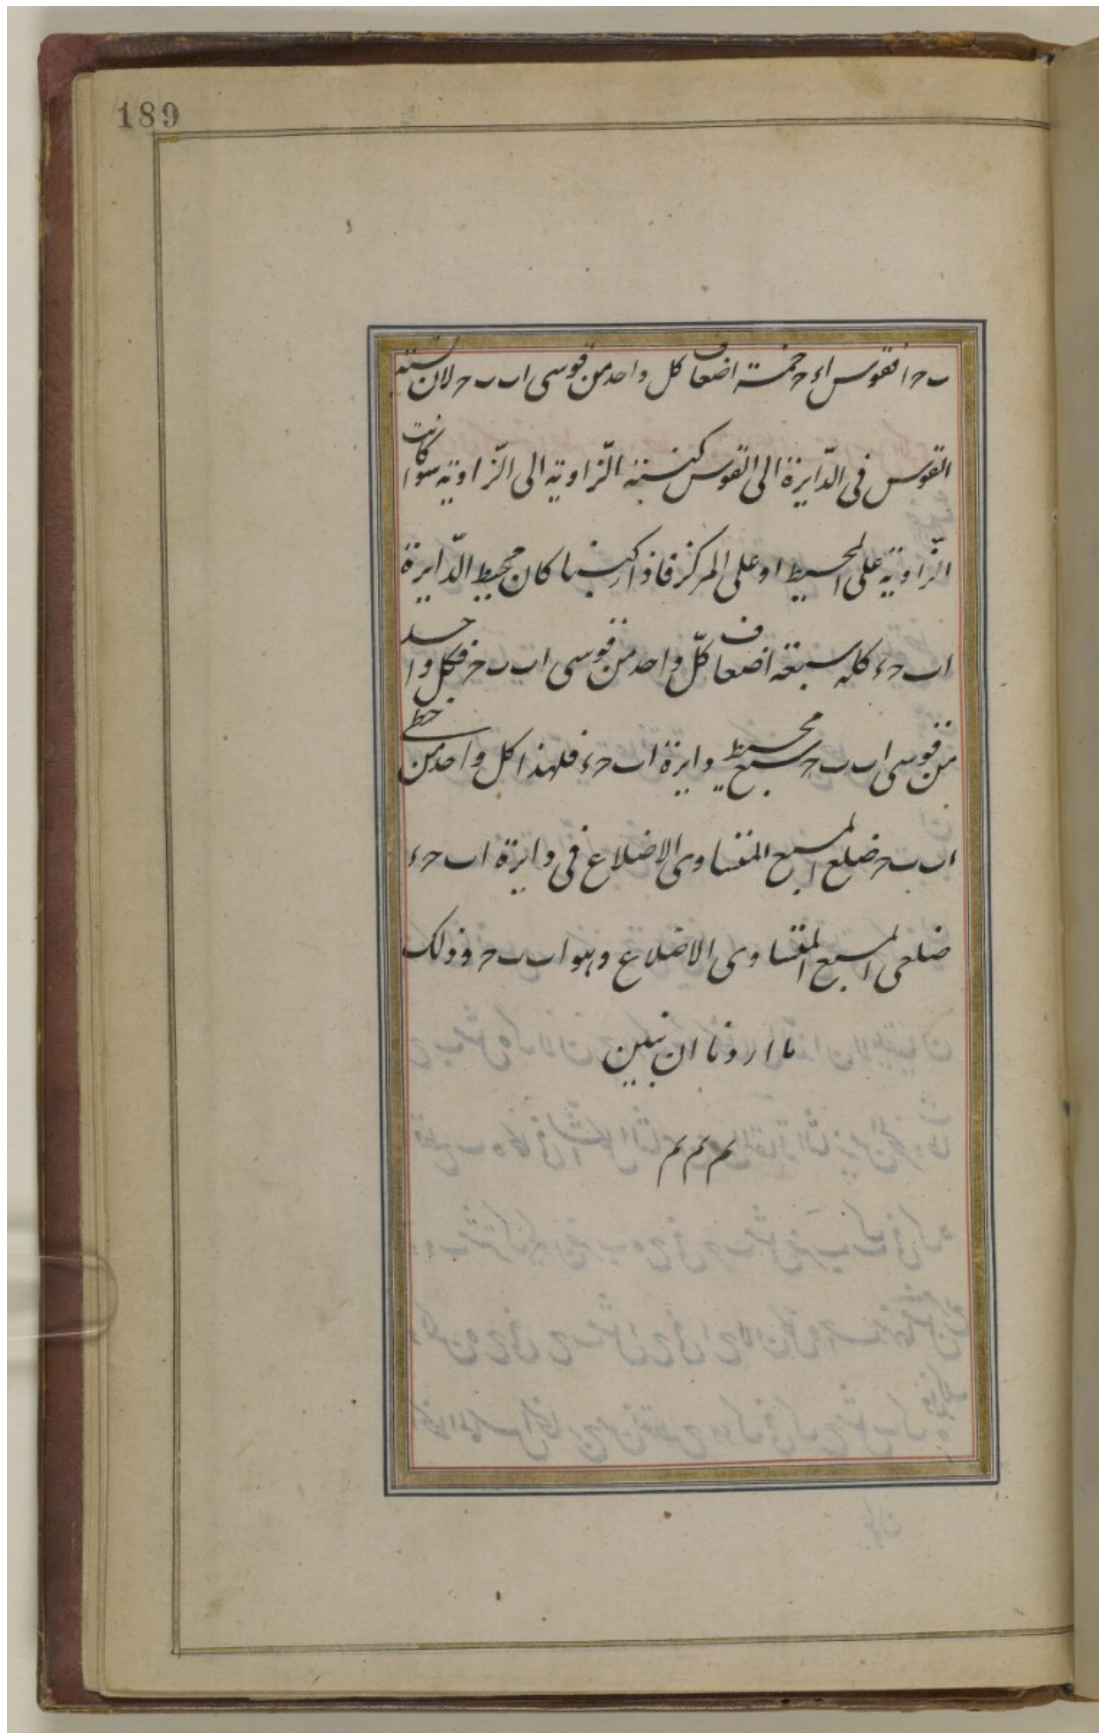 189
ب حـ ا فقوس اء حـ خمسة اضعاف كل واحد من قوسى اب ب حـ لان نسبة
القوس فى الدّايرة الى القوس كنسبة الزّاوية الى الزّاوية سوا كانت
الزّاوية على المحيط او على المركز فاذا ركبنا كان محيط الدّايرة
اب حـ ء كله سبعة اضعاف كلّ واحد من قوسى اب ب حـ فكل واحد
من قوسى اب ب حـ سبع محيط دايرة اب حـ ء فلهذا كل واحد من خطى
اب ب حـ ضلع المسبع المتساوى الاضلاع فى دايرة اب حـ ء
ضلعى المسبع المتساوى الاضلاع وهو اب ب حـ وذلك
ما اردنا ان نبين
مم مم مم